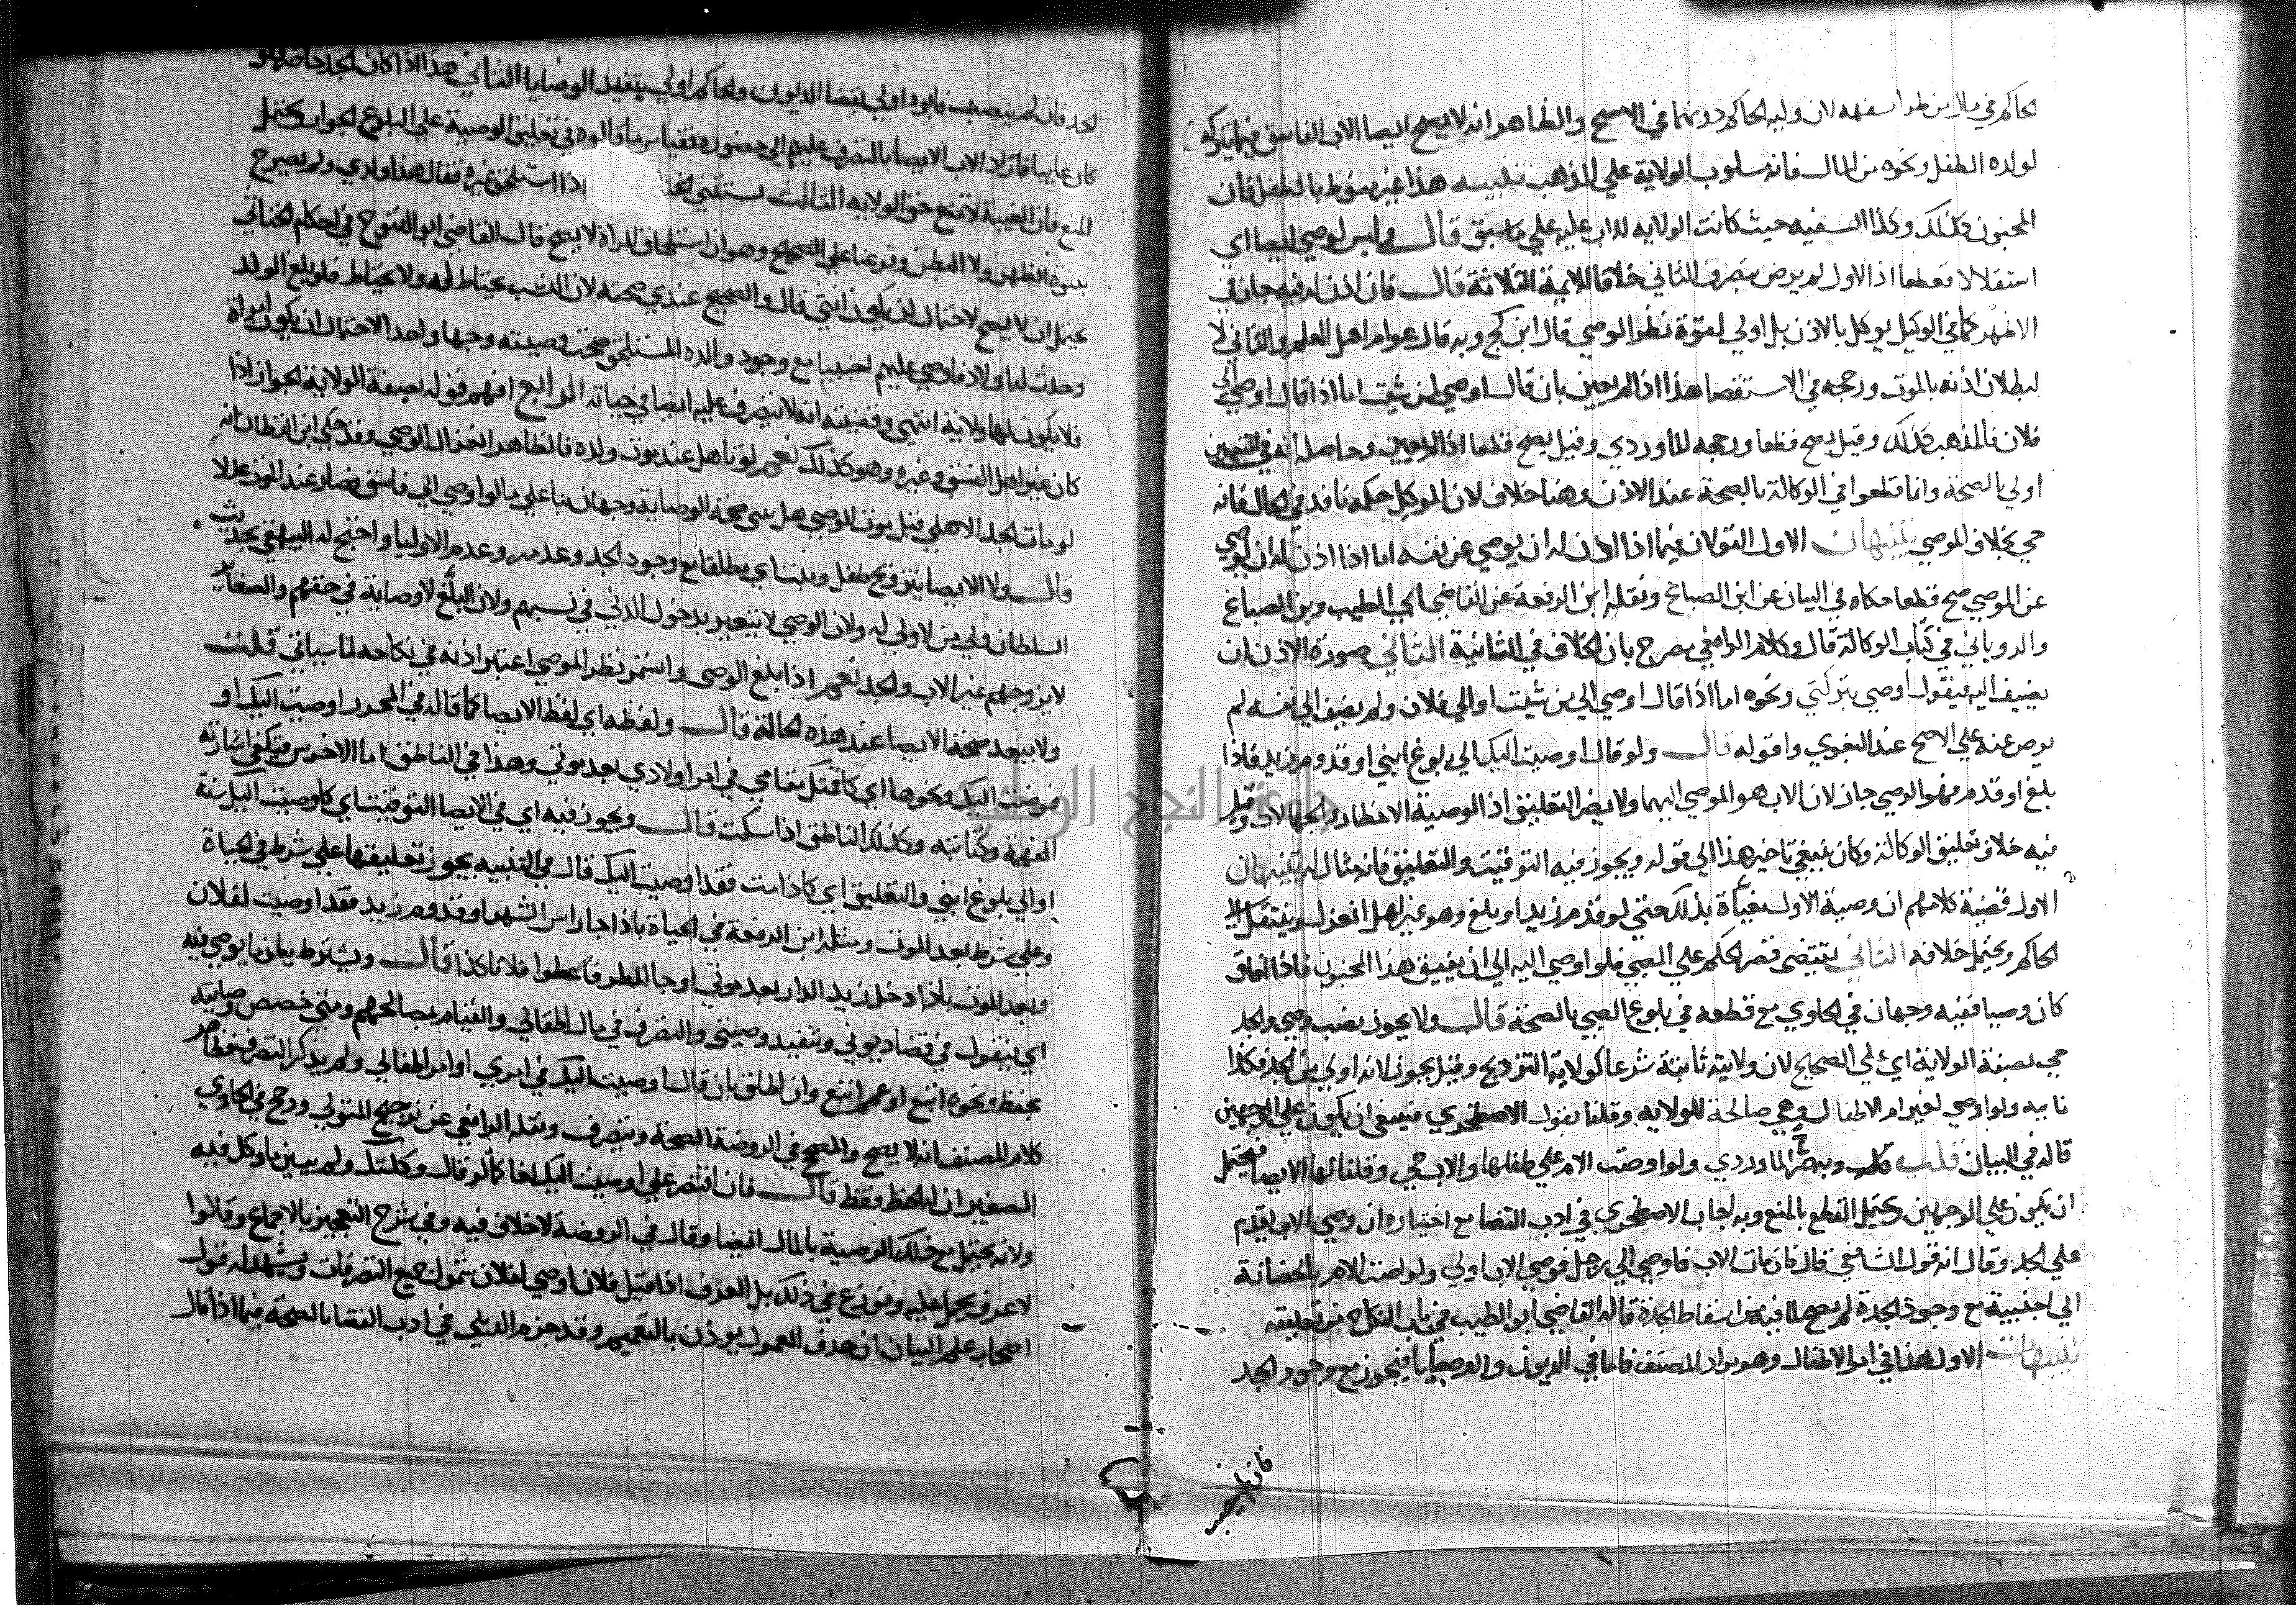 الحاكم في مال من طرا سفهه لان وليه الحاكم دونهما في الاصح والظاهر انه لا يصح ايصا الاب الفاسق فيما يتركه
لولده الطفل ونحوه من المال فانه مسلوب الولاية علي المذهب تنبيه هذا غير منوط بالطفل فان
المجنون كذلك وكذا السفيه حيث كانت الولايه للاب عليه علي ما سبق قال وليس لوصي ايصا اي
استقلالا قطعا اذ الاول لم يرض بتصرف الثاني خلافا للايمة الثلاثة قال فان اذن له فيه جاز في
الاظهر كما في الوكيل يوكل بالاذن بل اولي لقوة نظر الوصي قال ابن كج وبه قال عوام اهل العلم والثاني لا
لبطلان اذنه بالموت ورجحه في الاستقصا هذا اذا لم يعين بان قال اوصي لمن شيت اما اذا قال اوصي الي
فلان فالمذهب كذلك وقيل يصح قطعا ورجحه الماوردي وقيل يصح قطعا اذا لم يعين وحاصله انه في التعيين
اولي بالصحة وانما قطعوا في الوكالة بالصحة عند الاذن وهنا خلاف لان الموكل حكمه نافذ في الحال فانه
حي بخلاف الموصي تنبيهان الاول القولان فيما اذا اذن له ان يوصي عن نفسه اما اذا اذن له ان يوصي
عن الموصي صح قطعا حكاه في البيان عن ابن الصباغ ونقله ابن الرفعة عن القاضي ابي الطيب وبن الصباغ
والروياني في كتاب الوكالة قال وكلام الرافعي مصرح بان الخلاف في الثانية الثاني صورة الاذن ان
يضيف اليه فيقول اوصي بتركتي ونحوه اما اذا قال اوصي الي من شيت او الي فلان ولم يضف الي نفسه لم
يوص عنه علي الاصح عند البغوي واقروه قال ولو قال اوصيت اليك الي بلوغ ابني او قدوم زيد فاذا
بلغ او قدم فهو الوصي جاز لان الاب هو الموصي اليهما ولا يضر التعليق اذ الوصية الاخطار والجهالات وقيل
فيه خلاف تعليق الوكالة وكان ينبغي تاخير هذا الي قوله ويجوز فيه التوقيت والتعليق فانه مثال له تنبيهان
الاول قضية كلامهم ان وصية الاول مغياة بذلك حتي لو قدم زيد او بلغ وهو غير اهل انعزل وينتقل الي
الحاكم ويحتمل خلافه الثاني يقتضي قصر الحكم علي الصبي فلو اوصي اليه الي ان يفيق هذا المجنون فاذا افاق
كان وصيا ففيه وجهان في الحاوي مع قطعه في بلوغ الصبي بالصحة قال ولا يجوز نصب وصي والجد
حي بصفة الولاية اي علي الصحيح لان ولايته ثابتة شرعا كولاية التزويج وقيل يجوز لانه اولي من الجد فكذا
نايبه ولو اوصي لغير ام الاطفال وهي صالحة للولايه وقلنا بقول الاصطخري فينبغي ان يكون علي الوجهين
قاله في البيان قلت وبه الماوردي ولو اوصت الام علي طفلها والاب حي وقلنا لها الايصا فيحتمل
ان يكون علي الوجهين ويحتمل القطع بالمنع وبه اجاب الاصطخري في ادب القضا مع اختياره ان وصي الاب يقدم
علي الجد وقال انه قول الشافعي قال فان مات الاب فاوصي الي رجل فوصي الاب اولي ولو اوصت الام بالحضانة
الي اجنبية مع وجود الجدة لم يصح لما فيه من اسقاط الجدة قاله القاضي ابو الطيب في باب النكاح من تعليقه
تنبيهات الاول هذا في امر الاطفال وهو مراد المصنف فاما في الديون والوصايا فيجوز مع وجود الجد
الجد فان لم ينصب فابوه اولي بقضا الديون والحاكم اولي بتنفيذ الوصايا الثاني هذا اذا كان الجد حاضرا فلو
كان غايبا فاراد الاب الايصا بالتصرف عليهم الي حضوره فقياس ما قالوه في تعليق الوصية علي البلوغ الجواز ويحتمل
المنع فان الغيبة لا تمنع حق الولايه الثالث يستثني اذا استلحق غيره فقال هذا ولدي ولم يصرح
ببنوة الظهر ولا البطن وفرعنا علي الصحيح وهو ان استلحاق المراة لا يصح قال القاضي ابو الفتوح في احكام الخناثي
يحتمل ان لا يصح لاحتمال ان يكون انثي قال والصحيح عندي صحته لان النسب يحتاط له ولا يحتاط فلو بلغ الولد
وحدث له اولاد فاوصي عليهم اجنبيا مع وجود والده المستلحق صحت وصيته وجها واحدا لاحتمال ان يكون امراة
فلا يكون لها ولاية انتهي وقضيته انه لا يتصرف عليه ايضا في حياته الرابع افهم قوله بصفة الولاية الجواز اذا
كان غير اهل لفسق وغيره وهو كذلك نعم لو تاهل عند موت ولده فالظاهر انعزال الوصي وقد حكي ابن القطان انه
لو مات الجد الاهلي قبل موت الموصي هل يبني صحة الوصاية وجهان بنا علي ما لو اوصي الي فاسق فصار عند الموت عدلا
قال ولا الايصا بتزويج طفل وبنت اي مطلقا مع وجود الجد وعدمه وعدم الاوليا واحتج له البيهقي بحديث
السلطان ولي من لا ولي له ولان الوصي لا يتعير بدخول الدني في نسبهم ولان البلغ لا وصاية في حقهم والصغار
لا يزوجهم غير الاب والجد نعم اذا بلغ الوصي واستمر نظر الموصي اعتبر اذنه في نكاحه لما سياتي قلت
ولا يبعد صحة الايصا عند هذه الحالة قال ولفظه اي لفظ الايصا كما قاله في المحرر اوصيت اليك او
فوضت اليك ونحوها اي كاقمتك مقامي في امر اولادي بعد موتي وهذا في الناطق اما الاخرس فيكفي اشارته
المفهمة وكتابته وكذلك الناطق اذا سكت قال ويجوز فيه اي في الايصا التوقيت اي كاوصيت اليك سنة
او الي بلوغ ابني والتعليق اي كاذا مت فقد اوصيت اليك قال في التنبيه يجوز تعليقها علي شرط في الحياة
وعلي شرط بعد الموت ومثله ابن الرفعة في الحياة باذا جا راس الشهر او قدم زيد فقد اوصيت لفلان
وبعد الموت باذا دخل زيد الدار بعد موتي او جا المطر فاعطوا فلانا كذا قال ويشترط بيان ما يوصي فيه
اي فيقول في قضا ديوني وتنفيذ وصيتي والتصرف في مال اطفالي والقيام بمصالحهم ومتي خصص وصايته
بحفظ ونحوه اتبع او عمم اتبع وان اطلق بان قال اوصيت اليك في امري او امر اطفالي ولم يذكر التصرف فظاهر
كلام المصنف انه لا يصح والمصحح في الروضة الصحة ويتصرف ونقله الرافعي عن ترجيح المتولي ورجح في الحاوي
الصغير ان له الحفظ فقط قال فان اقتصر علي اوصيت اليك لغا كما لو قال وكلتك ولم يبين ما وكل فيه
ولانه يحتمل مع ذلك الوصية بالمال ايضا وقال في الروضة لا خلاف فيه وفي شرح التعجيز بالاجماع وقالوا
لا عرف يحمل عليه ونوزع في ذلك بل العرف اذا قيل فلان اوصي لفلان شمول جميع التصرفات ويشهد له قول
اصحاب علم البيان ان حذف المعمول يوذن بالتعميم وقد جزم الدبيلي في ادب القضا بالصحة فيما اذا قال
فان لم ينصب